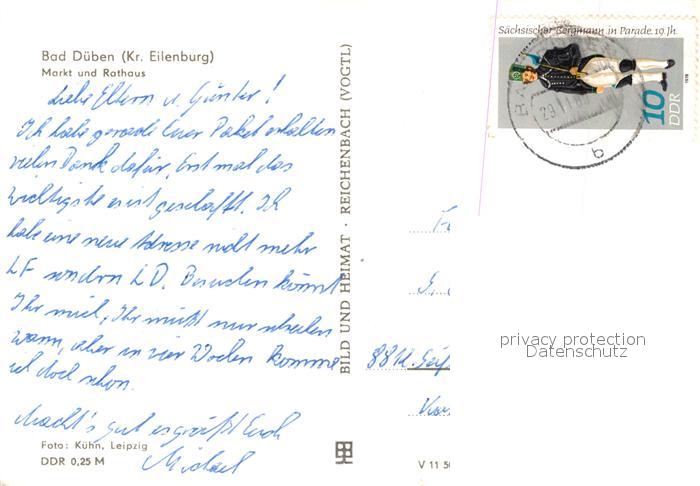 Bad Düben (Kr. Eilenburg)
Markt und Rathaus
Liebe Eltern u. Günter!
Ich habe gerade Euer Paket erhalten
vielen Dank dafür. Erst mal das
wichtigste es ist geschafft. Ich
habe eine neue Adresse nicht mehr
LF sondern LD. Besuchen könnt
Ihr mich, Ihr müßt nur schreiben
wann, aber in vier Wochen komme
ich doch schon.
Macht's gut es grüßt Euch
Michael
Foto: Kühn, Leipzig
DDR 0,25 M
BILD UND HEIMAT · REICHENBACH (VOGTL)
V 11 50
Sächsischer Bergmann in Parade. 19. Jh.
10
DDR
1978
BA
29.11.
b
8812 Seif
privacy protection
Datenschutz